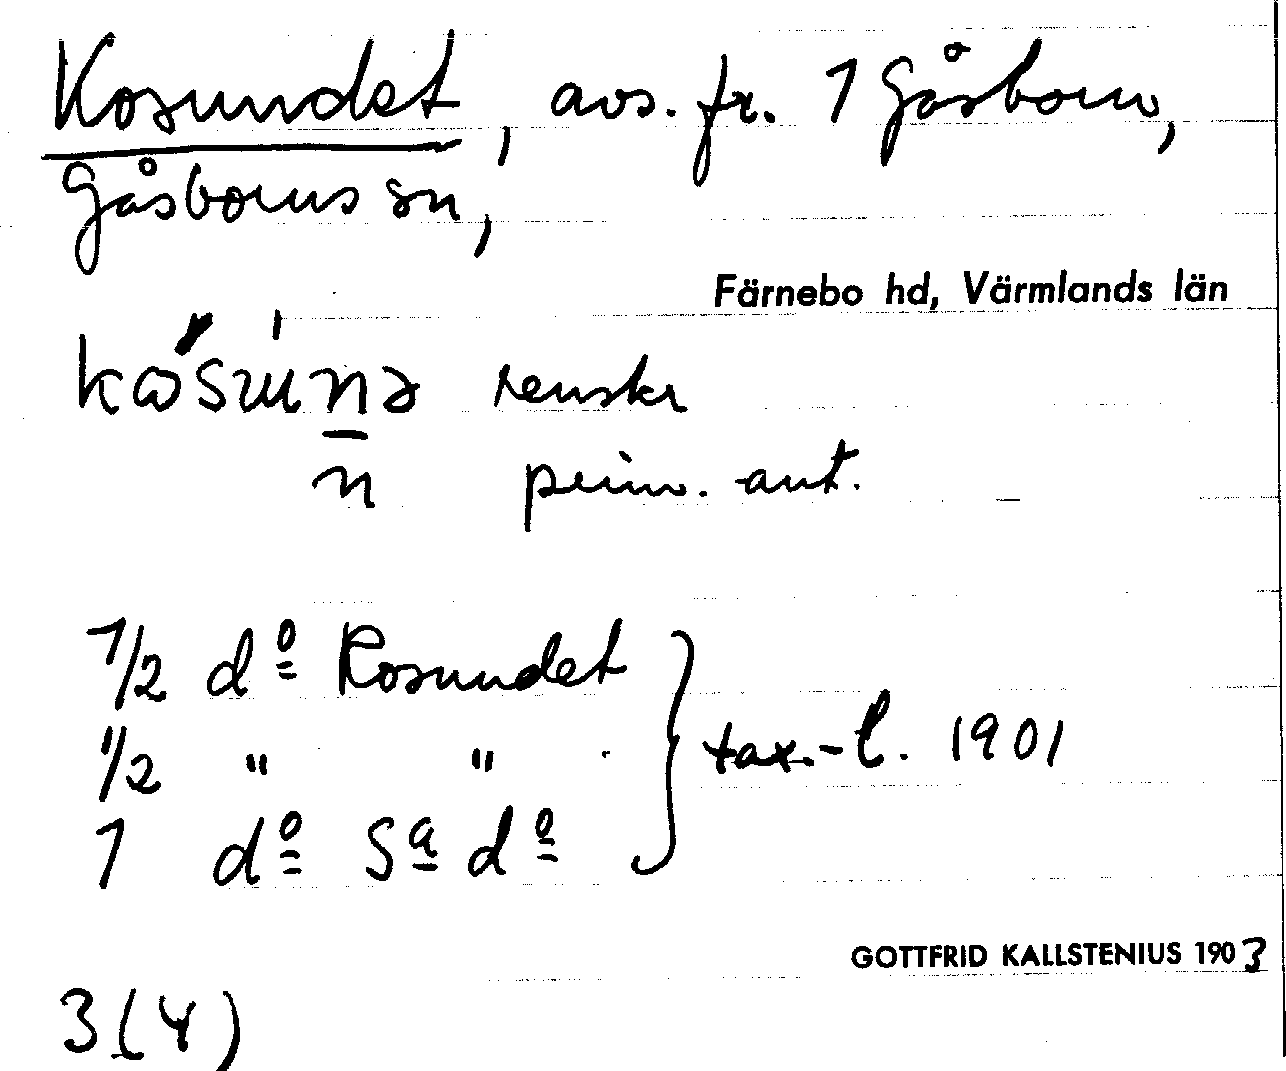 Kosundet, avs. fr. 1 Gåsborn,
Gåsborns sn,
Färnebo hd, Värmlands län
renskr
n prim. ant.
1/2 dº Kosundet
1/2 " "
1 dº Sª dº
tax.-l. 1901
GOTTFRID KALLSTENIUS 1903
3(4)